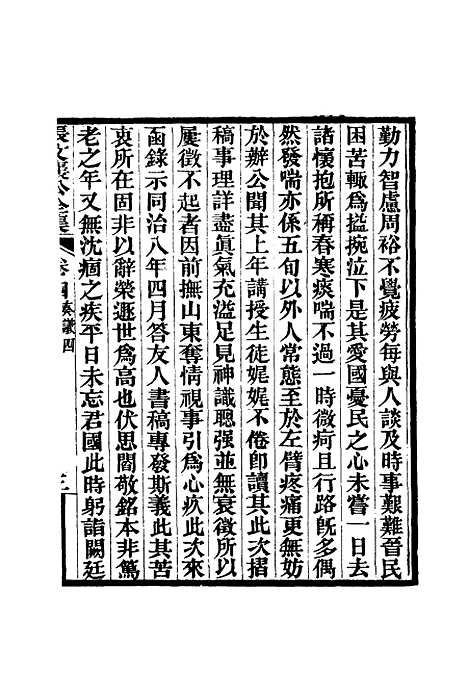 勤力智慮周裕不覺疲勞每與人談及時事艱難晉民
困苦輒爲搤捥泣下是其愛國憂民之心未嘗一日去
諸懷抱所稱春寒痰喘不過一時微疴且行路旣多偶
然發喘亦係五旬以外人常態至於左臂疼痛更無妨
於辦公聞其上年講授生徒娓娓不倦卽讀其此次摺
稿事理詳盡眞氣充溢足見神識聰强並無衰徵所以
屢徵不起者因前撫山東奪情視事引爲心疚此次來
函錄示同治八年四月答友人書稿專發斯義此其苦
衷所在固非以辭榮遯世爲高也伏思閻敬銘本非篤
老之年又無沈痼之疾平日未忘君國此時躬詣闕廷
張文襄公全集 卷四 奏議四 三